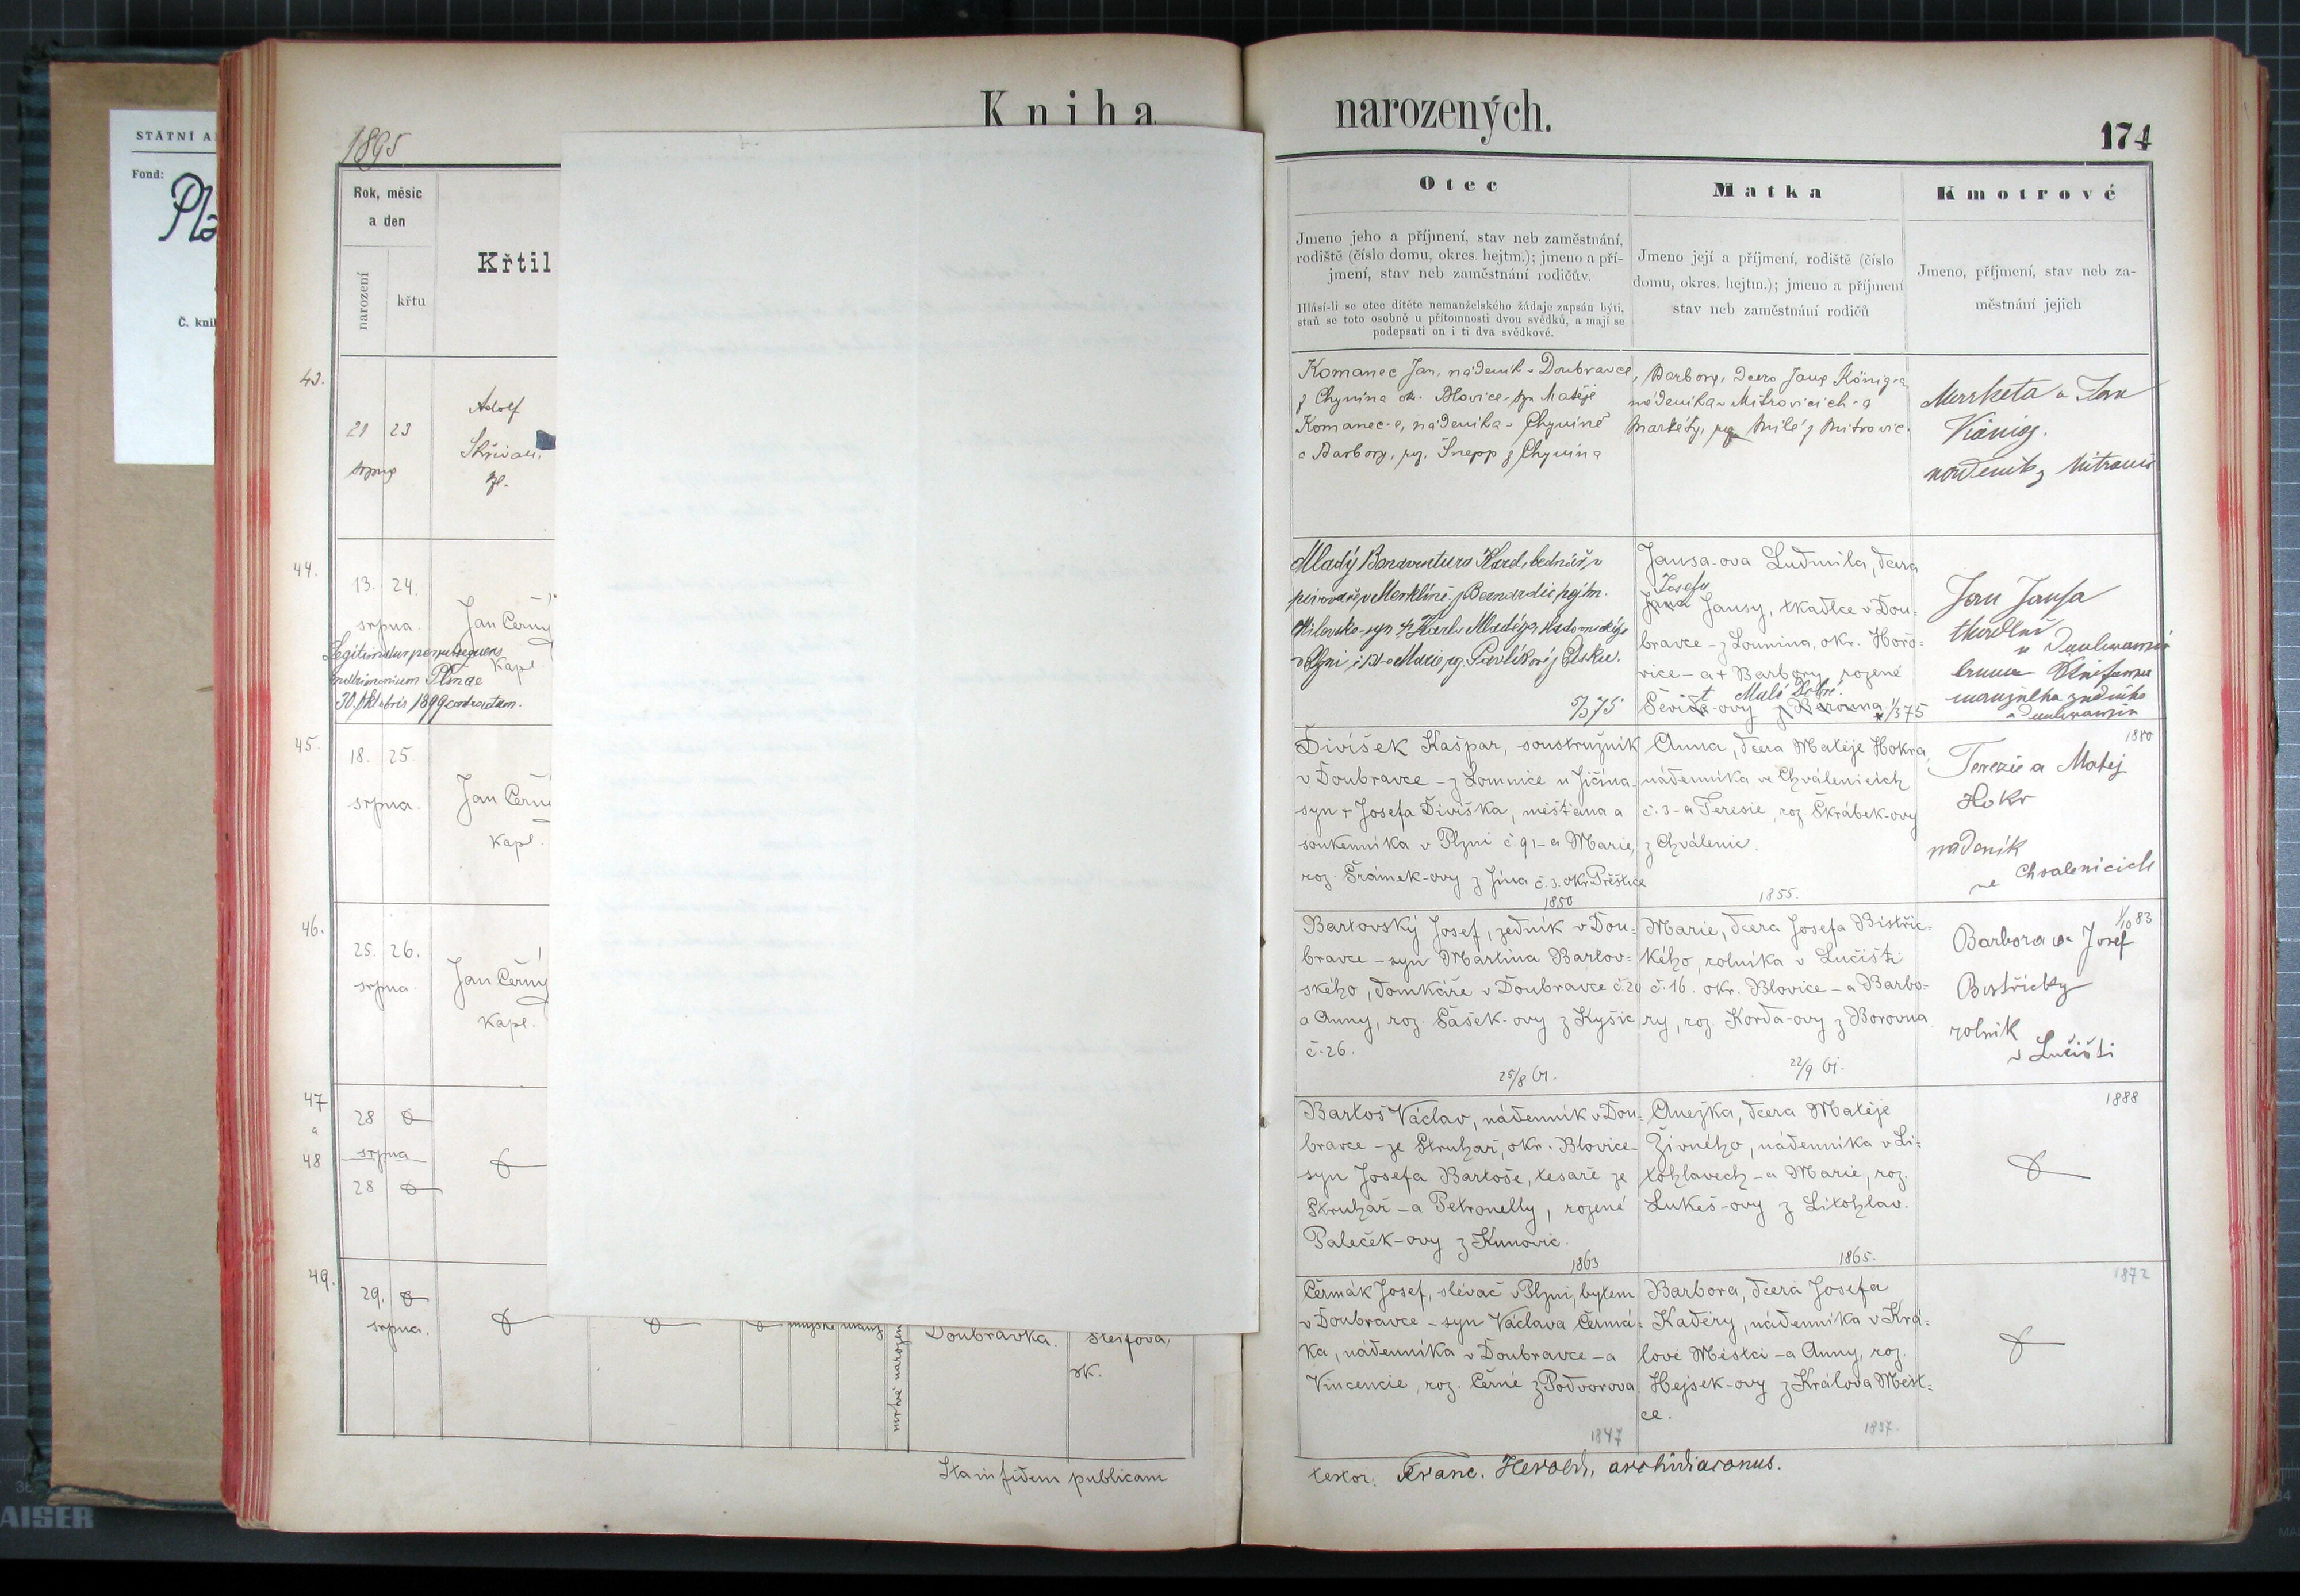 STÁTNÍ A
Fond:
Plz
Č. kni
Kniha
narozených.
1895
174
Rok, měsíc
a den
narození
křtu
Křtil
43.
21 23
srpna
Adolf
44.
13. 24.
srpna.
Jan Černý
Kapl.
Legitimatus per subsequens
matrimonium Plznae
30. Oktobris 1899 contractum.
45.
18. 25
srpna.
Jan Černý
Kapl.
46.
25. 26.
srpna.
Jan Černý
Kapl.
47
a
48
28
srpna
28
49.
29.
srpna.
mrtvě narozen
Doubravka.
zk.
Stain fidem publicam
Otec
Jmeno jeho a příjmení, stav neb zaměstnání,
rodiště (číslo domu, okres. hejtm.); jmeno a pří-
jmení, stav neb zaměstnání rodičův.
Hlásí-li se otec dítěte nemanželského žádaje zapsán býti,
staň se toto osobně u přítomnosti dvou svědků, a mají se
podepsati on i ti dva svědkové.
Matka
Jmeno její a příjmení, rodiště (číslo
domu, okres. hejtm.); jmeno a příjmení
stav neb zaměstnání rodičů
Kmotrové
Jmeno, příjmení, stav neb za-
městnání jejich
Komanec Jan, nádeník v Doubravce,
z Chynína ok. Blovice - syn Matěje
Komanec-e, nádeníka v Chyníně
a Barbory, roz. Šnepp z Chynína
Barbora, dcera Jana König-a,
nádeníka v Mitrovicích - a
Markéty, roz. Milé z Mitrovic.
Markéta a Jan
König.
nádeník z Mitrovic
Mladý Bonaventura Karel, bednář v
pivovaře v Merklíně z Bernardic hejtm.
Milevsko - syn † Karla Mladého
v Plzni a Marie roz. Pavlíkové z Písku.
5/7 75
Jansa-ova Ludmila, dcera
Josefa
Jana Jansy, tkadlce v Dou-
bravce - z Lounína, okr. Hořo-
vice - a † Barbory rozené
Malé Dobré.
Ševčík-ovy z Berouna 1/3 75
Jan Jansa
tkadlec
v Doubravce
Divíšek Kašpar, soustružník
v Doubravce - z Lomnice u Jičína -
syn † Josefa Divíška, měšťana a
soukenníka v Plzni č. 91 - a Marie,
roz. Šrámek-ovy z Jína č. 3. okr. Přeštice
1850
Anna, dcera Matěje Hokra,
nádenníka ve Chválenicích
č. 3 - a Teresie, roz. Škrábek-ovy
z Chválenic.
1855.
1880
Terezie a Matěj
Hokr
nádeník
ve Chvalenicích
Bartovský Josef, zedník v Dou-
bravce - syn Martina Bartov-
ského, domkáře v Doubravce č. 20
a Anny, roz. Šašek-ovy z Kyšic
č. 26.
25/8 61.
Marie, dcera Josefa Bistřic-
kého, rolníka v Lučišti
č. 16. okr. Blovice - a Barbo-
ry, roz. Korda-ovy z Borovna
22/9 61.
1/10 83
Barbora a Josef
Bistřický
rolník
v Lučišti
Bartoš Václav, nádenník v Dou-
bravce - ze Struhař, okr. Blovice -
syn Josefa Bartoše, tesaře ze
Struhař - a Petronelly, rozené
Paleček-ovy z Kunovic.
1863
Anežka, dcera Matěje
Živného, nádenníka v Li-
tohlavech - a Marie, roz.
Lukeš-ovy z Litohlav.
1865.
1888
Čermák Josef, slévač v Plzni, bytem
v Doubravce - syn Václava Čermá-
ka, nádenníka v Doubravce - a
Vincencie, roz. Černé z Podvorova
1847
Barbora, dcera Josefa
Kaděry, nádenníka v Krá-
lově Městci - a Anny, roz.
Hejsek-ovy z Králova Měst-
ce.
1857.
1872
testor: Franc. Herold, archidiaconus.